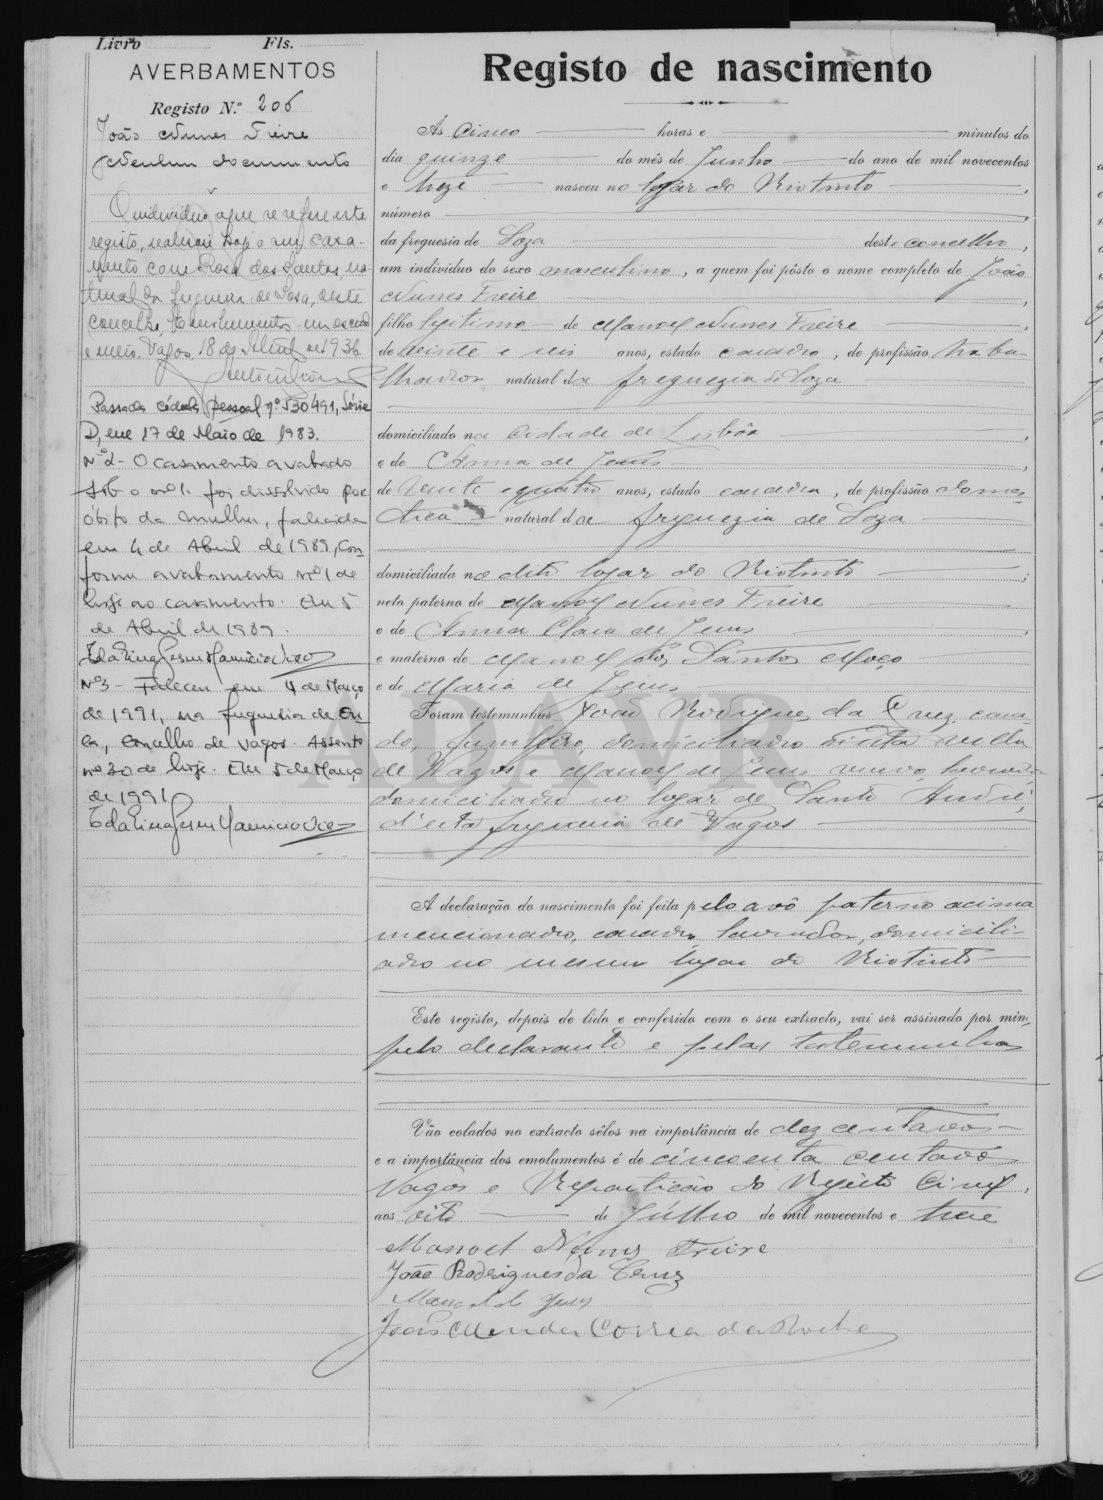 Livro Fls.
AVERBAMENTOS
Registo N.º 206
João Nunes Freire
Nenhum documento
O individuo a que se refere este
registo, realisou hoje o seu casa-
mento com Rosa dos Santos, na-
tural da freguesia de Sosa, deste
concelho. Emolumentos - um escudo
e meio. Vagos, 18 de Abril de 1936
Passada cédula pessoal nº 530491, Série
D, em 17 de Maio de 1983.
Nº 2 - O casamento averbado
sob o nº 1. foi dissolvido por
óbito da mulher, falecida
em 4 de Abril de 1989, con-
forme averbamento nº 1 de
hoje ao casamento. Em 5
de Abril de 1989.
Nº 3 - Faleceu em 4 de Março
de 1991, na freguesia de
concelho de Vagos. Assento
nº 30 de hoje. Em 5 de Março
de 1991
Registo de nascimento
Ás cinco horas e minutos do
dia quinze do mês de Junho do ano de mil novecentos
e treze nasceu no logar do Riotinto,
número
da freguesia de Soza deste concelho,
um individuo do sexo masculino, a quem foi pôsto o nome completo de João
Nunes Freire,
filho legitimo de Manoel Nunes Freire,
de vinte e seis anos, estado casado, de profissão traba-
lhador natural da freguezia de Soza
domiciliado na Cidade de Lisbôa,
e de Anna de Jesus,
de vinte e quatro anos, estado casada, de profissão domes-
tica natural da freguezia de Soza
domiciliada no dito logar do Riotinto;
neto paterno de Manoel Nunes Freire
e de Anna Clara de Jesus
e materno de Manoel dos Santos Moço
e de Maria de Jesus
Foram testemunhas João Rodrigues da Cruz, casa-
do, funileiro, domiciliado nesta villa
de Vagos e Manoel de Jesus, viuvo, lavrador
domiciliado no logar de Santo André,
d'esta freguesia de Vagos
A declaração do nascimento foi feita pelo avô paterno acima
mencionado, casado, lavrador, domicili-
ado no mesmo logar do Riotinto
Este registo, depois de lido e conferido com o seu extracto, vai ser assinado por mim,
pelo declarante e pelas testemunhas
Vão colados no extracto sêlos na importância de dez centavos
e a importância dos emolumentos é de cincoenta centavos
Vagos e Repartição do Registo Civil,
aos oito de Julho de mil novecentos e treze
Manoel Nunes Freire
João Rodrigues da Cruz
Manoel de Jesus
João Mendes Correia da Rocha
ADAVR